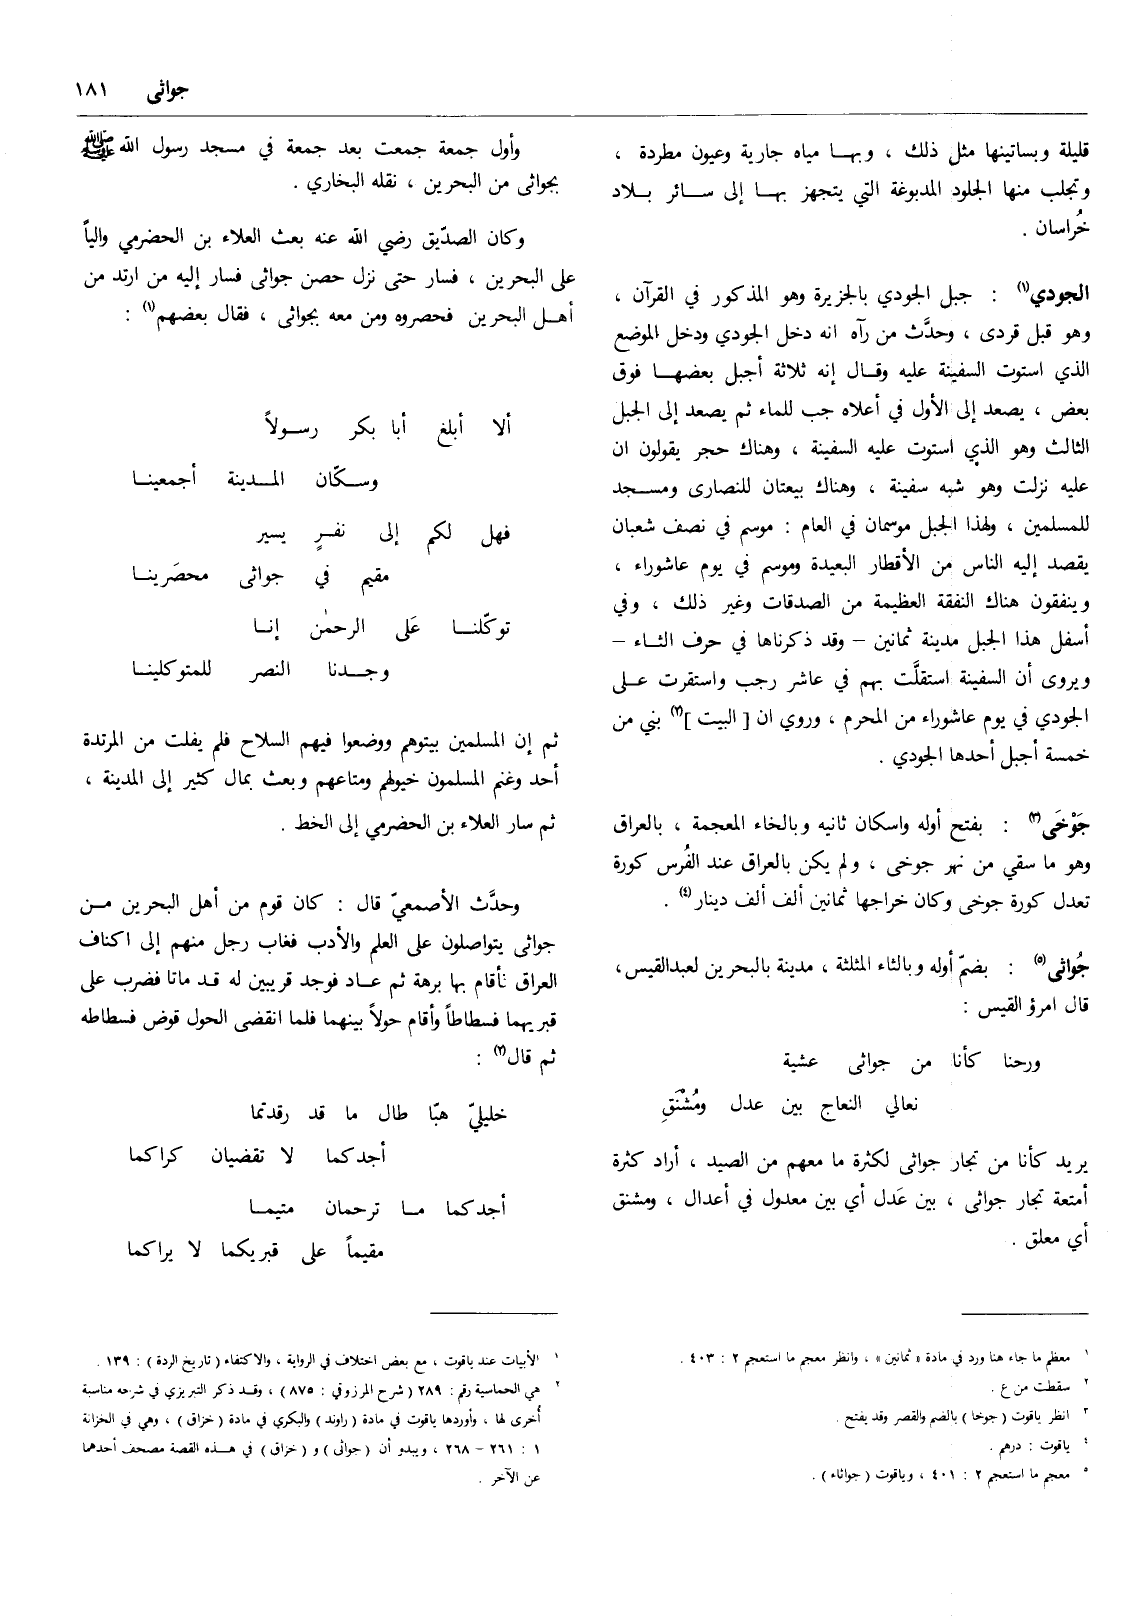 جواثى ١٨١
قليلة وبساتينها مثل ذلك ، وبهـا مياه جارية وعيون مطردة ،
وتجلب منها الجلود المدبوغة التي يتجهز بهـا إلى سـائر بـلاد
خُراسان .
الجودي(١) : جبل الجودي بالجزيرة وهو المذكور في القرآن ،
وهو قبل قردى ، وحدَّث من رآه انه دخل الجودي ودخل الموضع
الذي استوت السفينة عليه وقـال إنه ثلاثة أجبل بعضهـا فوق
بعض ، يصعد إلى الأول في أعلاه جب للماء ثم يصعد إلى الجبل
الثالث وهو الذي استوت عليه السفينة ، وهناك حجر يقولون ان
عليه نزلت وهو شبه سفينة ، وهناك بيعتان للنصارى ومسـجد
للمسلمين ، ولهذا الجبل موسمان في العام : موسم في نصف شعبان
يقصد إليه الناس من الأقطار البعيدة وموسم في يوم عاشوراء ،
وينفقون هناك النفقة العظيمة من الصدقات وغير ذلك ، وفي
أسفل هذا الجبل مدينة ثمانين – وقد ذكرناها في حرف الثـاء –
ويروى أن السفينة استقلَّت بهم في عاشر رجب واستقرت عـلى
الجودي في يوم عاشوراء من المحرم ، وروي ان [ البيت ](٢) بني من
خمسة أجبل أحدها الجودي .
جَوْخَى(٣) : بفتح أوله واسكان ثانيه وبالخاء المعجمة ، بالعراق
وهو ما سقي من نهر جوخى ، ولم يكن بالعراق عند الفُرس كورة
تعدل كورة جوخى وكان خراجها ثمانين ألف ألف دينار(٤) .
جُواثى(٥) : بضمّ أوله وبالثاء المثلثة ، مدينة بالبحرين لعبدالقيس،
قال امرؤ القيس :
ورحنا كأنا من جواثى عشية
نعالي النعاج بين عدل ومُشْنَقِ
يريد كأنا من تجار جواثى لكثرة ما معهم من الصيد ، أراد كثرة
أمتعة تجار جواثى ، بين عَدل أي بين معدول في أعدال ، ومشنق
أي معلق .
١ معظم ما جاء هنا ورد في مادة « ثمانين » ، وانظر معجم ما استعجم ٢ : ٤٠٣ .
٢ سقطت من ع .
٣ انظر ياقوت ( جوخا ) بالضم والقصر وقد يفتح .
٤ ياقوت : درهم .
٥ معجم ما استعجم ٢ : ٤٠١ ، وياقوت ( جواثاء ) .
وأول جمعة جمعت بعد جمعة في مسجد رسول الله ﷺ
بجواثى من البحرين ، نقله البخاري .
وكان الصدّيق رضي الله عنه بعث العلاء بن الحضرمي والياً
على البحرين ، فسار حتى نزل حصن جواثى فسار إليه من ارتد من
أهـل البحرين فحصروه ومن معه بجواثى ، فقال بعضهم(١) :
ألا أبلغ أبا بكر رسـولاً
وسـكّان المـدينة أجمعينـا
فهل لكم إلى نفـرٍ يسير
مقيم في جواثى محصَرينـا
توكّلنـا عَلى الرحمٰن إنـا
وجـدنا النصر للمتوكلينـا
ثم إن المسلمين بيتوهم ووضعوا فيهم السلاح فلم يفلت من المرتدة
أحد وغنم المسلمون خيولهم ومتاعهم وبعث بمال كثير إلى المدينة ،
ثم سار العلاء بن الحضرمي إلى الخط .
وحدَّث الأصمعيّ قال : كان قوم من أهل البحرين مـن
جواثى يتواصلون على العلم والأدب فغاب رجل منهم إلى اكناف
العراق فأقام بها برهة ثم عـاد فوجد قريبين له قـد ماتا فضرب على
قبريهما فسطاطاً وأقام حولاً بينهما فلما انقضى الحول قوض فسطاطه
ثم قال(٢) :
خليليّ هبّا طال ما قد رقدتما
أجدكما لا تقضيان كراكما
أجدكما مـا ترحمان متيمـا
مقيماً على قبريكما لا يراكما
١ الأبيات عند ياقوت ، مع بعض اختلاف في الرواية ، والاكتفاء ( تاريخ الردة ) : ١٣٩ .
٢ هي الحماسية رقم : ٢٨٩ ( شرح المرزوقي : ٨٧٥ ) ، وقـد ذكر التبريزي في شرحه مناسبة
أخرى لها ، وأوردها ياقوت في مادة ( راوند ) والبكري في مادة ( خزاق ) ، وهي في الخزانة
١ : ٢٦١ – ٢٦٨ ، ويبدو أن ( جواثى ) و ( خزاق ) في هـذه القصة مصحف أحدهما
عن الآخر .